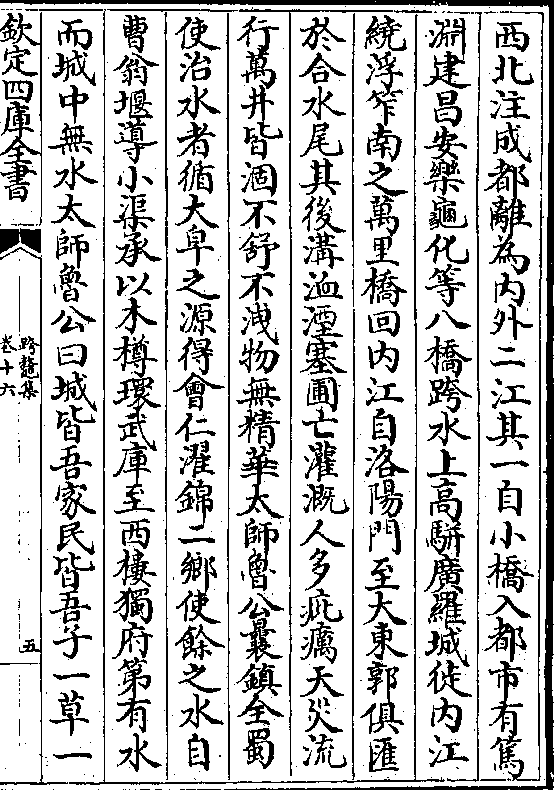 西北注成都離為内外二江其一自小橋入都市有篤
淵建昌安樂龜化等八橋跨水上高駢廣羅城徙内江
繞浮笮南之萬里橋回内江自洛陽門至大東郭俱匯
於合水尾其後溝洫湮塞圃亡灌溉人多疵癘天災流
行萬井皆涸不舒不洩物無精華太師魯公曩鎮全蜀
使治水者循大皁之源得會仁濯錦二鄉使餘之水自
曹翁堰導小渠承以木樽環武庫至西樓獨府第有水
而城中無水太師魯公曰城皆吾家民皆吾子一草一
欽定四庫全書
跨鼇集
卷十六
五